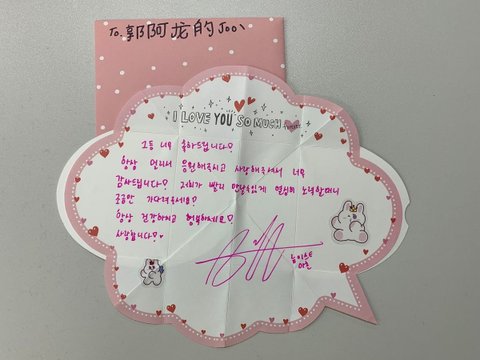 To. 郭阿龙的Joo
I LOVE YOU SO MUCH
그동 너무 축하드립니다♡
항상 멀리서 응원해주시고 사랑해주셔서 너무
감사드립니다♡ 저희가 빨리 만날수있게 열심히 노력할테니
조금만 기다려주세요♡
항상 건강하시고 행복하세요♡
사랑합니다♡
뉴이스트
아론